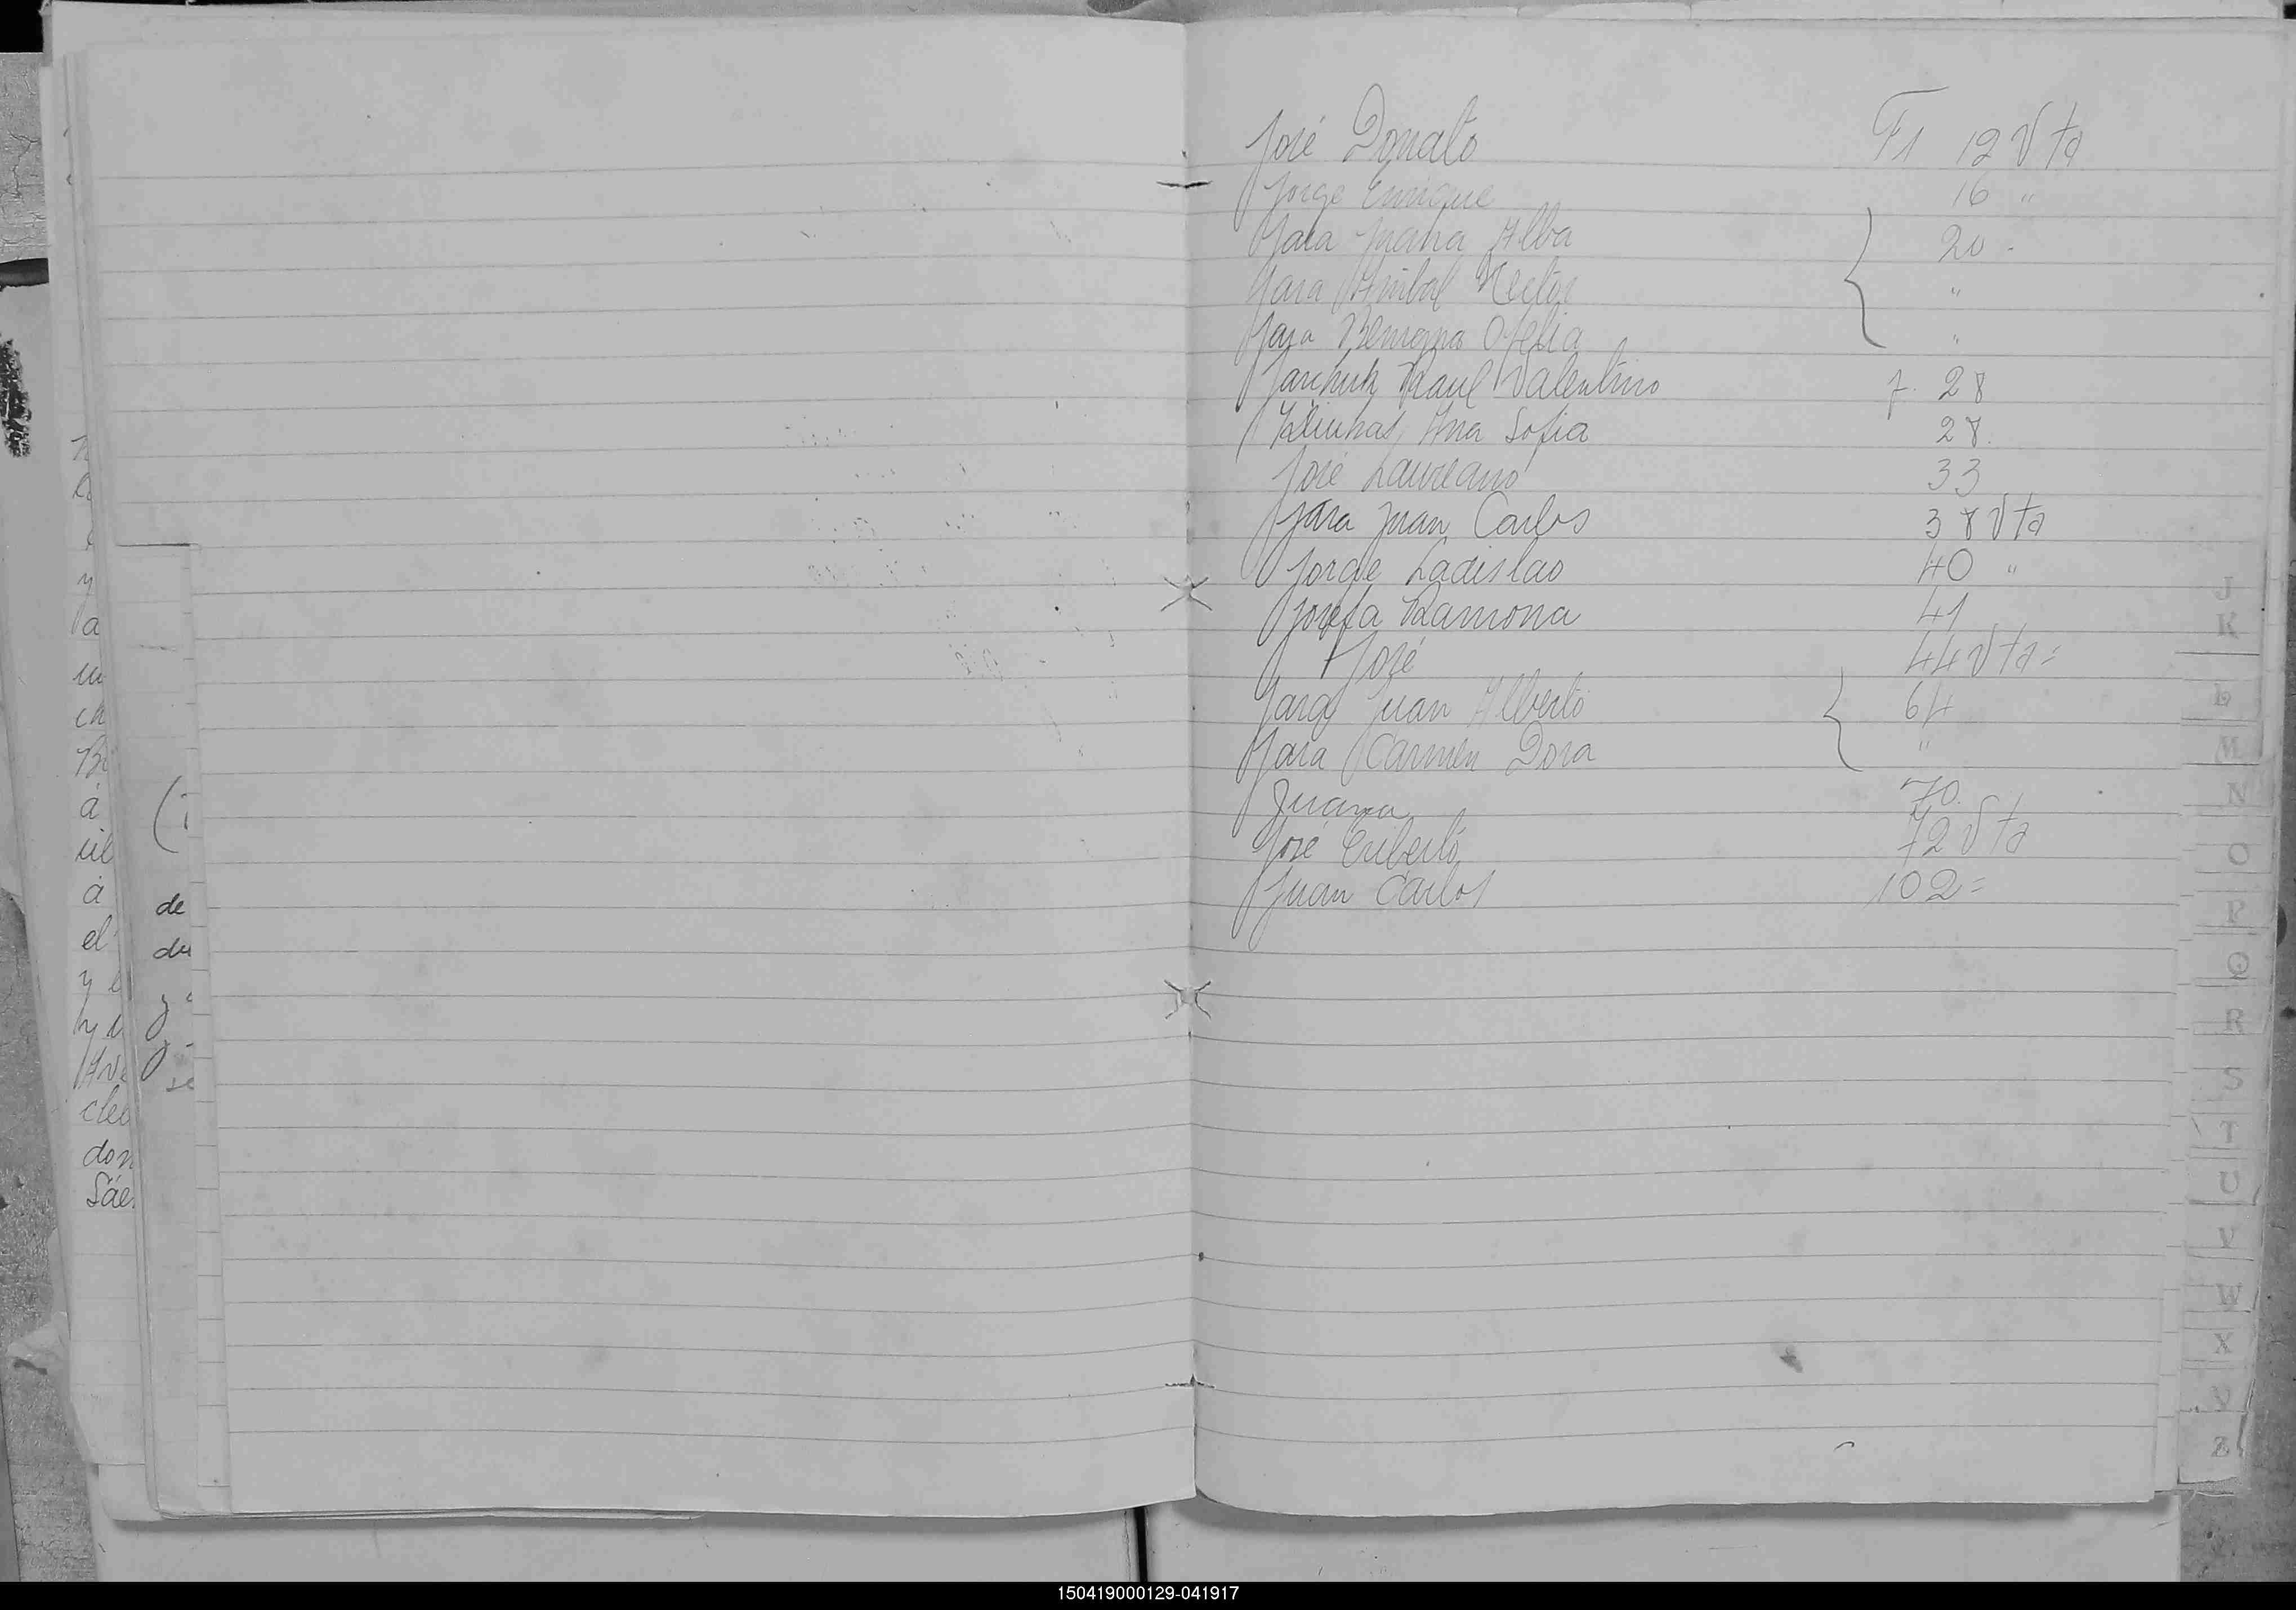 José Donato F1 12 Vta
Jorge Enrique 16 "
Jara Juana Alba 20 -
Jara Anibal Nestor "
Jara Benigna Ofelia "
Raul Valentino f. 28
Ana Sofia 28.
José Laureano 33
Jara Juan Carlos 38 Vta
Jorge Ladislao 40 "
Josefa Ramona 41
José 44 Vta =
Jara Juan Alberto 64
Jara Carmen Dora "
Juana 70.
José Eriberto 72 Vta
Juan Carlos 102 =
J
K
L
M
N
O
P
Q
R
S
T
U
V
W
X
Y
Z
a
á
á
el
de
don
150419000129-041917